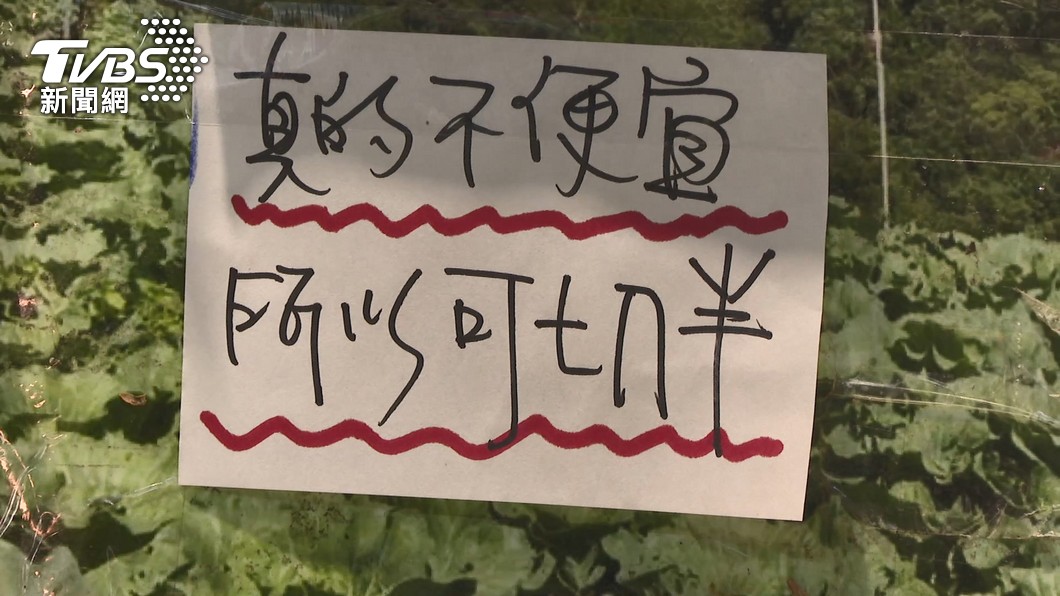 TVBS
新聞網
真的不便宜
所以可切半